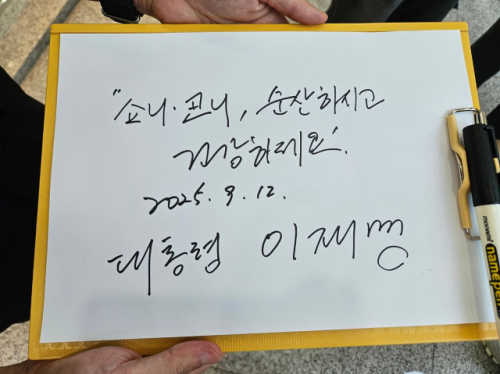 "쇼니·코니, 순산하시고
건강하세요".
2025. 9. 12.
대통령 이재명
monami
name pen